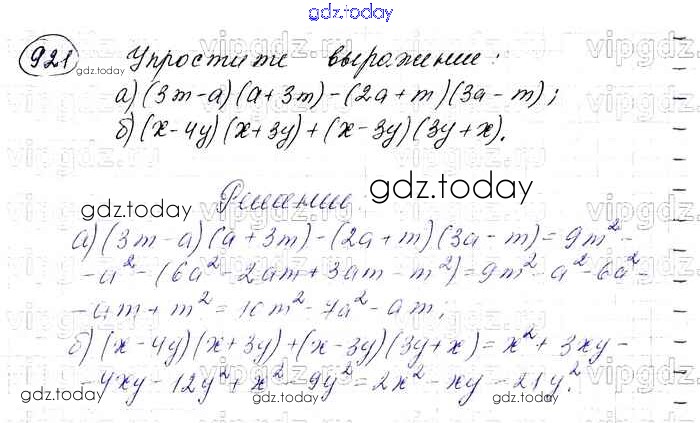 gdz.today
921 Упростите выражение:
а) (3m-a)(a+3m)-(2a+m)(3a-m);
б) (x-4y)(x+3y)+(x-3y)(3y+x).
Решение.
а) (3m-a)(a+3m)-(2a+m)(3a-m)=9m²-
-a²-(6a²-2am+3am-m²)=9m²-a²-6a²-
-am+m²=10m²-7a²-am;
б) (x-4y)(x+3y)+(x-3y)(3y+x)=x²+3xy-
-4xy-12y²+x²-9y²=2x²-xy-21y².
gdz.today
gdz.today
gdz.today
gdz.today
gdz.today